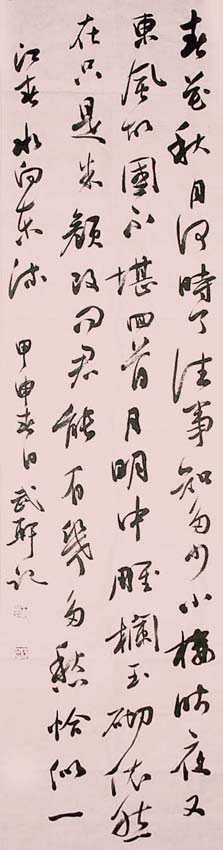 春花秋月何時了往事知多少小樓昨夜又
東風故國不堪回首月明中雕欄玉砌依然
在只是朱顏改問君能有幾多愁恰似一
江春水向東流 甲申春日武軒記